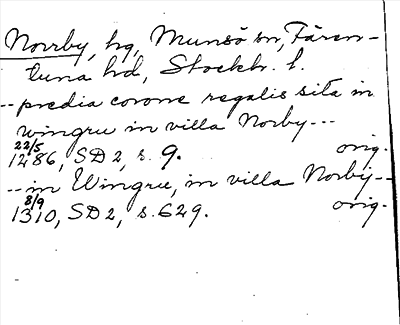 Norrby, hg, Munsö sn, Fären-
tuna hd, Stockh. l.
-- predia corone regalis sita in
wingru in villa Norby ---
22/5
1286, SD 2, s. 9. orig.
-- in Wingru, in villa Norby --
8/9
1310, SD 2, s. 629. orig.